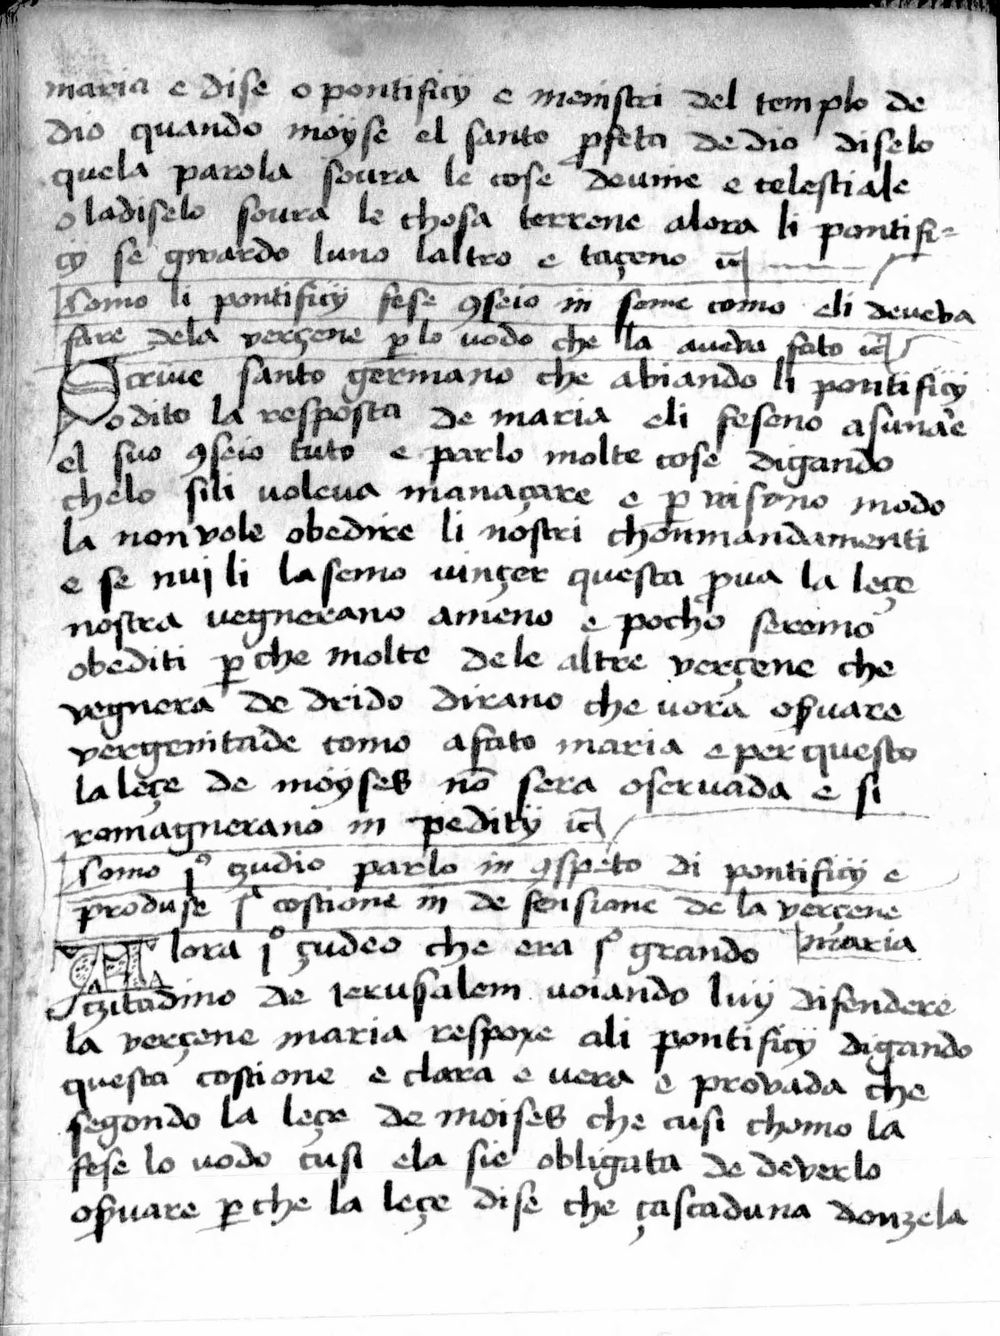 maria e dise o pontificÿ e meinstri del templo de
dio quando moÿse el santo ꝓfeta de dio diselo
quela parola soura le cose deuine e celestiale
o ladiselo soura le chosa terrene alora li pontifi-
cÿ se gwardo luno laltro e taçeno
Como li pontificÿ fese ꝯseio in seme como eli deueba
fare dela verçene ꝑ lo uodo che la aueba fato
Scriue santo germano che abiando li pontificÿ
odito la resposta de maria eli feseno asunare
el suo ꝯseio tuto e parlo molte cose digando
chelo sili voleua manaçare e ꝑ nisuno modo
la non vole obedire li nostri chonmandamenti
e se nuj li lasemo uinçer questa ꝓua la leçe
nostra vegnerano ameno e pocho seremo
obediti ꝑche molte dele altre verçene che
vegnera de drido dirano che uora oẞuare
vergenitade como a fato maria e per questo
la leçe de moÿses nō sera oseruada e si
romagnerano in peditÿ
Como jº zudio parlo in ꝯspeto di pontificÿ e
produse jª costione in de fensione de la verçene
maria
Alora jº çudeo che era jº grando
zitadino de jerusalem uoiando luÿ difendere
la verçene maria respoxe ali pontificÿ digando
questa costione e clara e vera e provada che
segondo la leçe de moises che cusi chomo la
fese lo uodo cusi ela sie obligata de deverlo
oẞuare ꝑche la leçe dise che çascaduna donzela